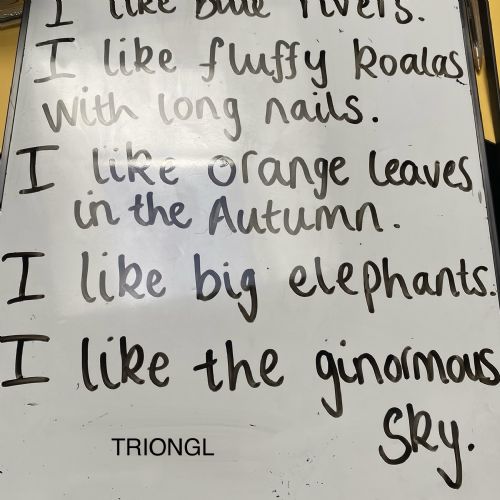 I like blue rivers.
I like fluffy koalas
with long nails.
I like orange leaves
in the Autumn.
I like big elephants.
I like the ginormous
sky.
TRIONGL